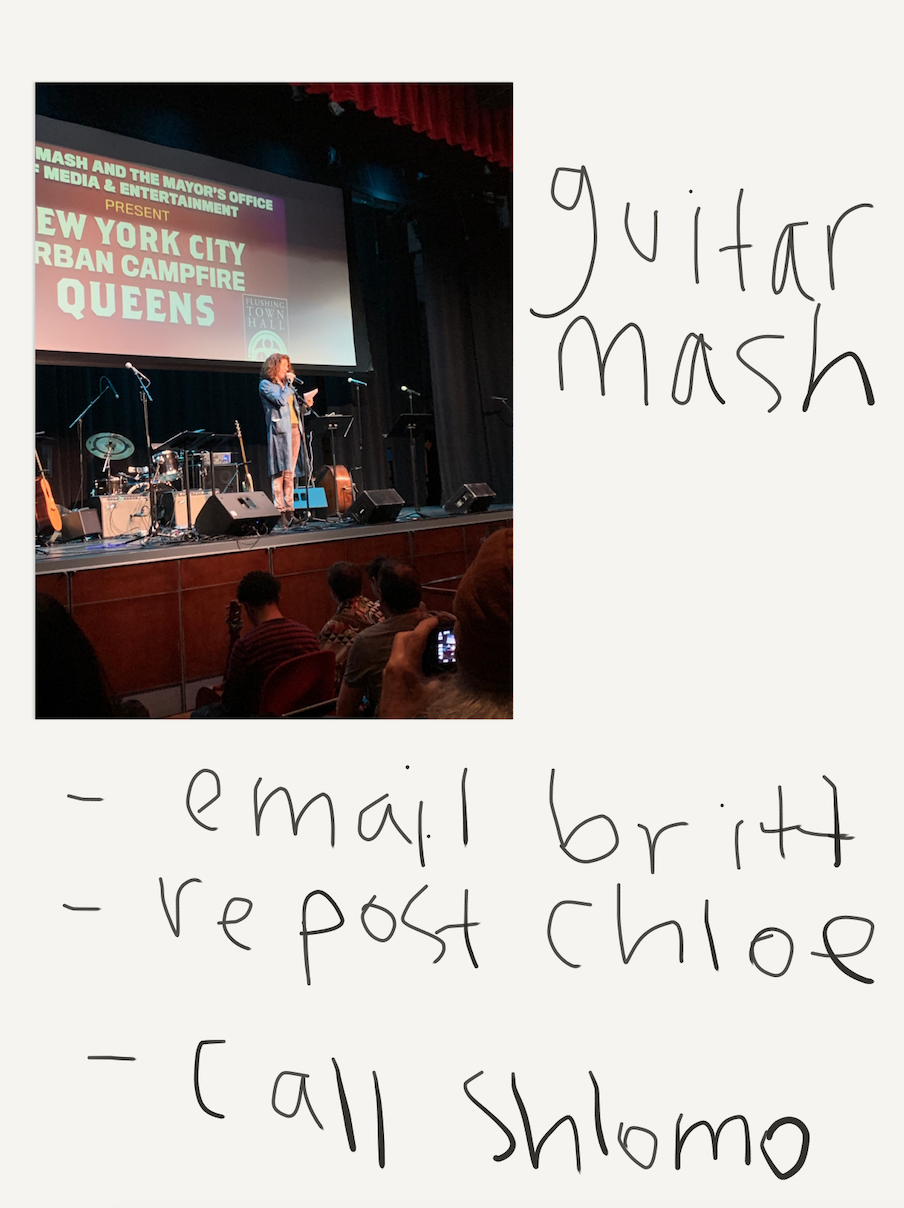 MASH AND THE MAYOR'S OFFICE
F MEDIA & ENTERTAINMENT
PRESENT
EW YORK CITY
RBAN CAMPFIRE
QUEENS
FLUSHING
TOWN
HALL
guitar
mash
- email britt
- repost chloe
- call shlomo